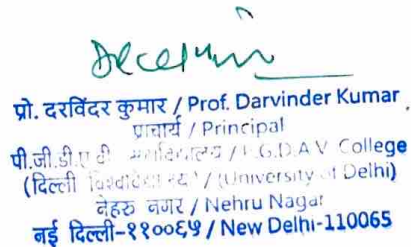 प्रो. दरविंदर कुमार / Prof. Darvinder Kumar
प्राचार्य / Principal
पी.जी.डी.ए.वी. महाविद्यालय / P.G.D.A.V. College
(दिल्ली विश्वविद्यालय) / (University of Delhi)
नेहरू नगर / Nehru Nagar
नई दिल्ली-११००६५ / New Delhi-110065